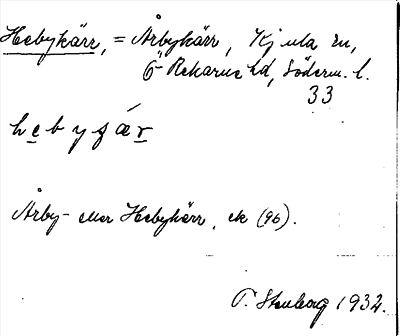 Hebykärr, = Årbykärr, Kjula sn,
Ö Rekarne hd, Söderm. l.
33
hebyȿár
Årby- eller Hebykärr, ek (96).
P. Stenborg 1932.